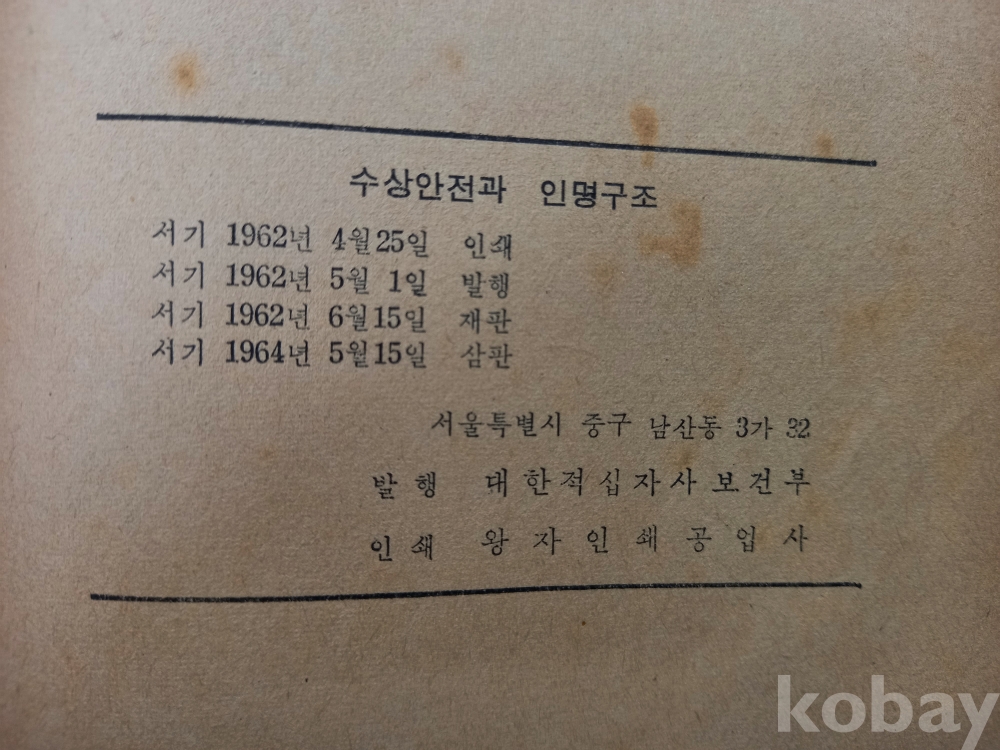 수상안전과 인명구조
서기 1962년 4월25일 인쇄
서기 1962년 5월 1일 발행
서기 1962년 6월15일 재판
서기 1964년 5월15일 삼판
서울특별시 중구 남산동 3가 32
발행 대한적십자사보건부
인쇄 왕자인쇄공업사
kobay